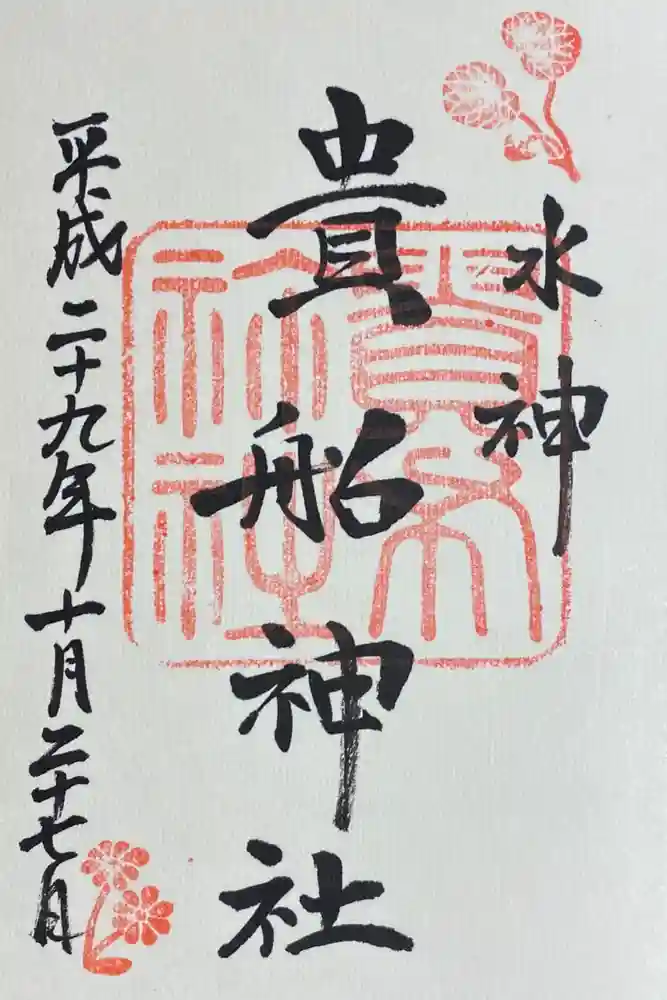 水神
貴船神社
平成二十九年十月二十七日